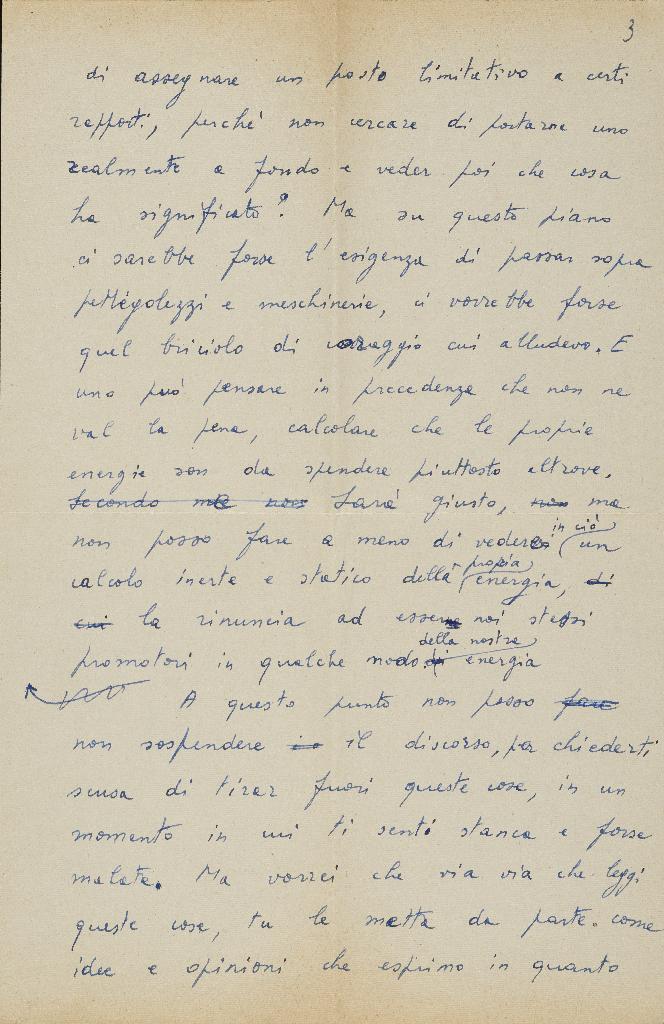 3
di assegnare un posto limitativo a certi
rapporti, perché non cercare di portarne uno
realmente a fondo e veder poi che cosa
ha significato? Ma su questo piano
ci sarebbe forse l'esigenza di passar sopra
pettégolezzi e meschinerie, ci vorrebbe forse
quel briciolo di coraggio cui alludevo. E
uno può pensare in precedenza che non ne
val la pena, calcolare che le proprie
energie son da spendere piuttosto altrove.
Secondo me non Sarà giusto, non ma
non posso fare a meno di vederci in ciò un
calcolo inerte e statico della propria energia, di
cui la rinuncia ad essere noi stessi
promotori in qualche modo di della nostra energia
A questo punto non posso fare
non sospendere il discorso, per chiederti
scusa di tirar fuori queste cose, in un
momento in cui ti senti stanca e forse
malata. Ma vorrei che via via che leggi
queste cose, tu le metta da parte come
idee e opinioni che esprimo in quanto